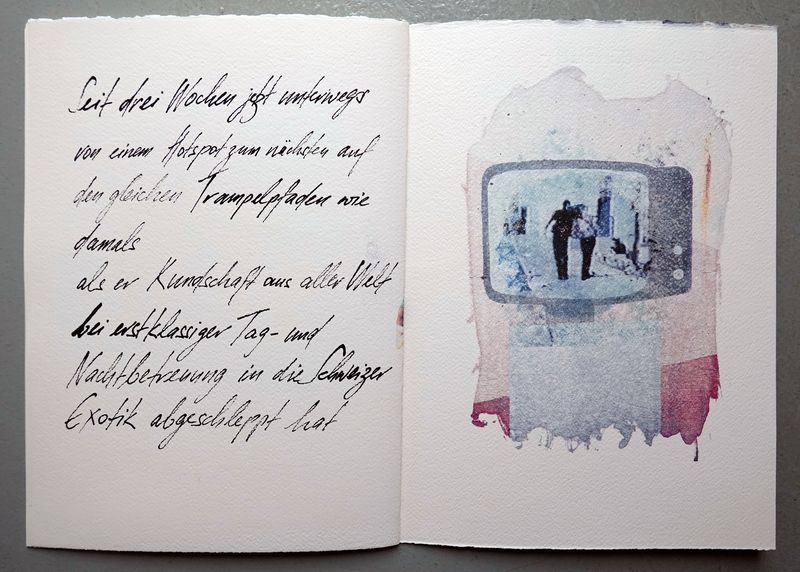 Seit drei Wochen jetzt unterwegs
von einem Hotspot zum nächsten auf
den gleichen Trampelpfaden wie
damals
als er Kundschaft aus aller Welt
bei erstklassiger Tag- und
Nachtbetreuung in die Schweizer
Exotik abgeschleppt hat